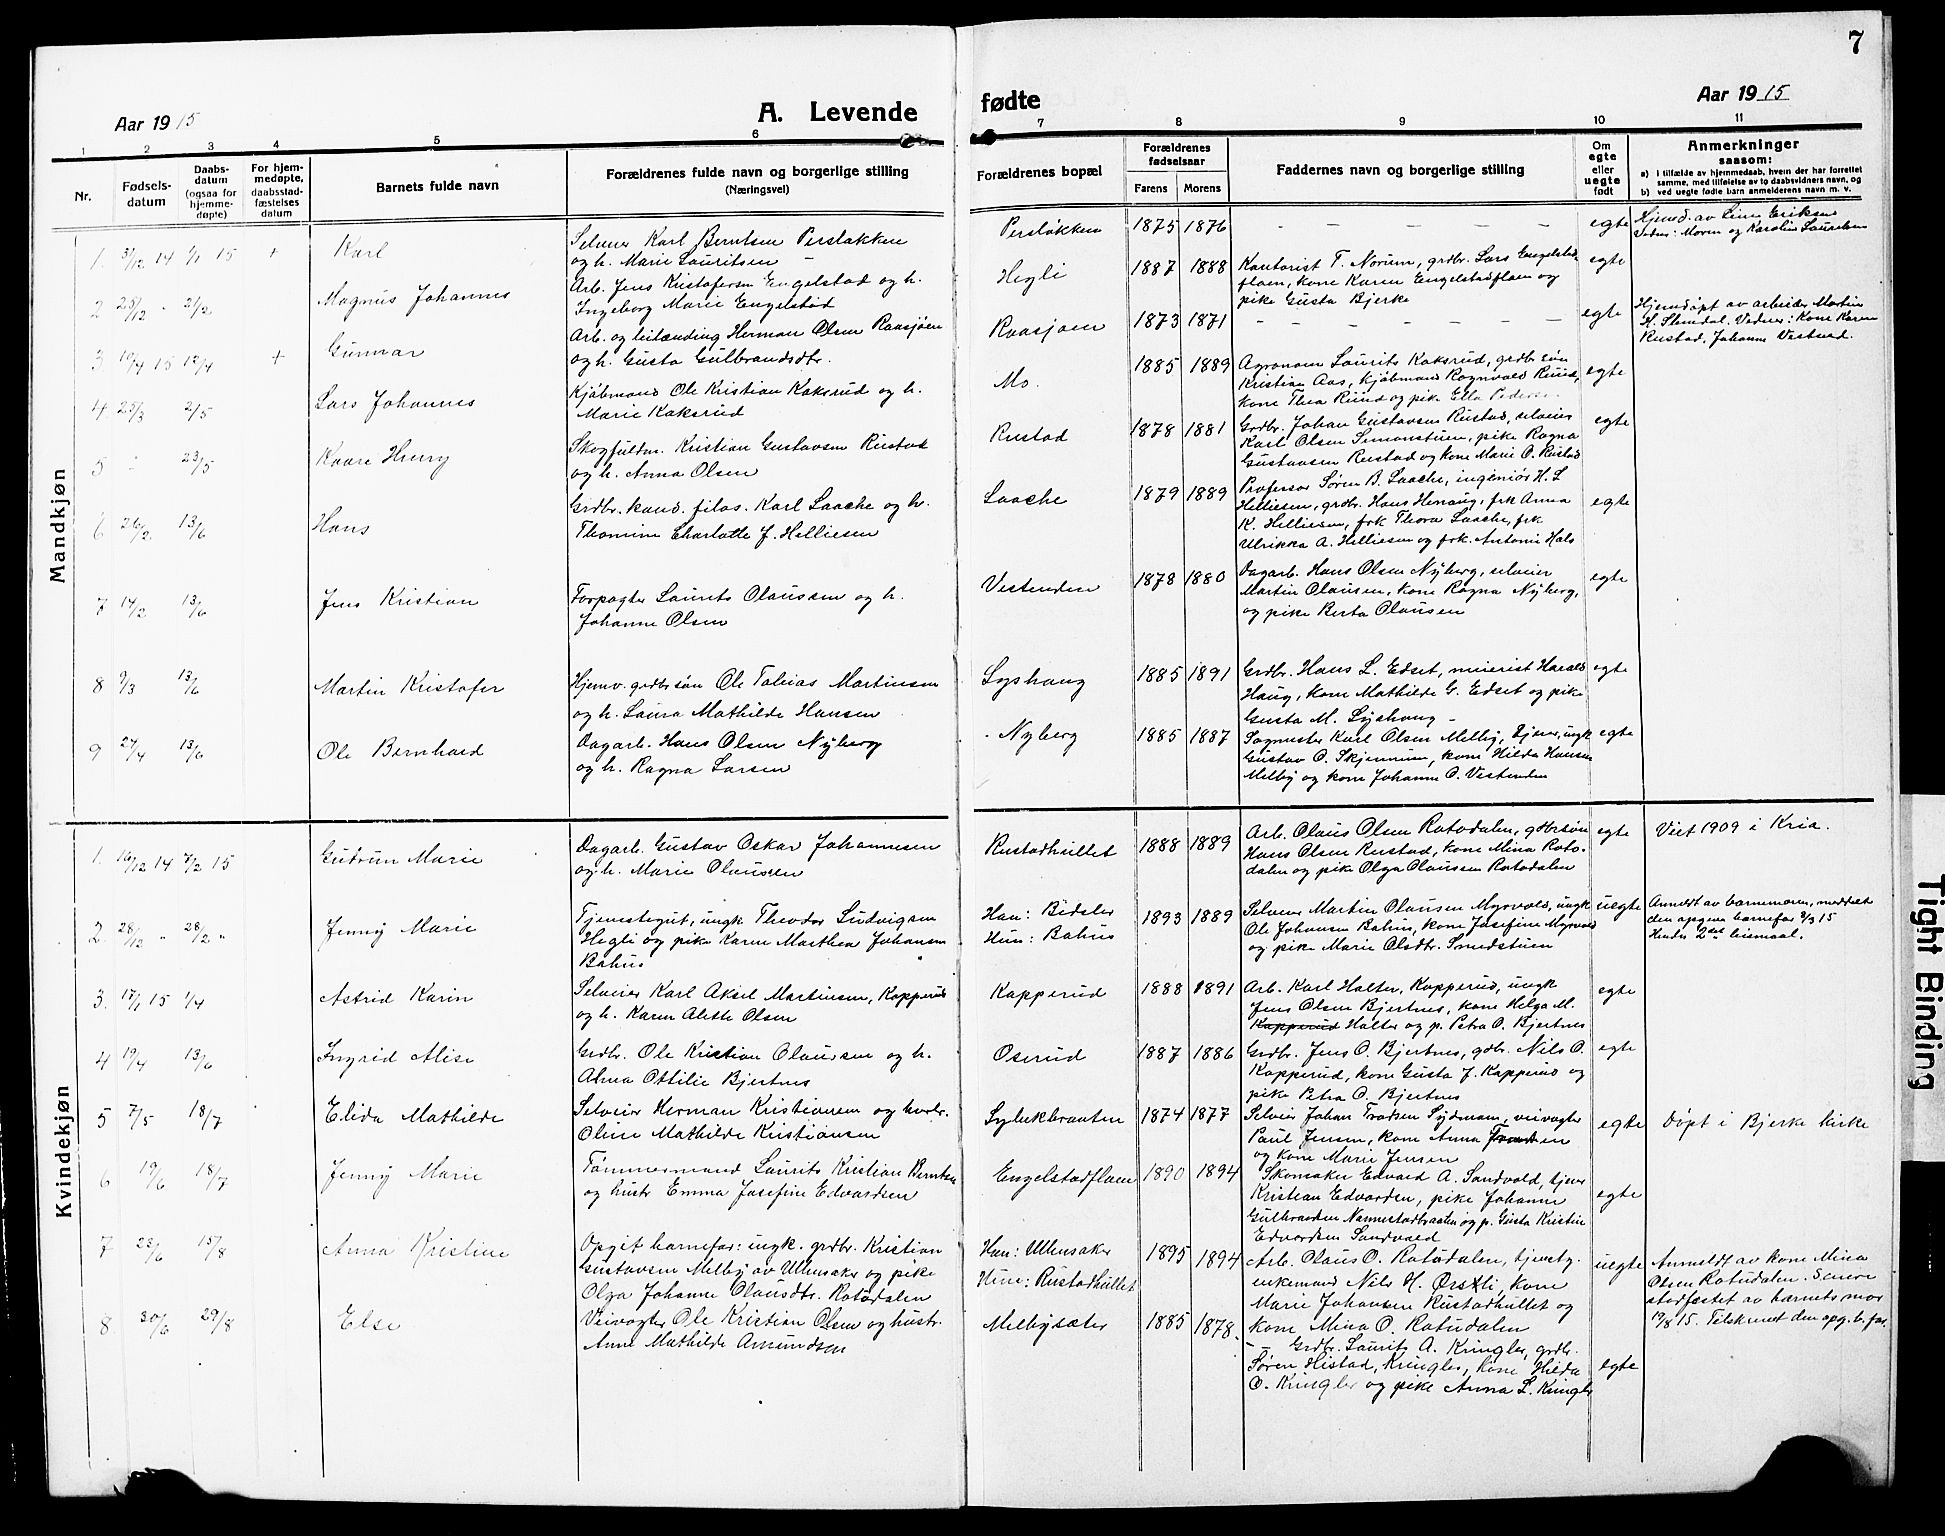 7
Aar 1915
A. Levende
fødte
Aar 1915
1 2 3 4 5 6 7 8 9 10 11
Nr.
Fødsels-
datum
Daabs-
datum
(ogsaa for
hjemme-
døpte)
For hjem-
medøpte,
daabsstad-
fæstelses
datum
Barnets fulde navn
Forældrenes fulde navn og borgerlige stilling
(Næringsvei)
Forældrenes bopæl
Forældrenes
fødselsaar
Farens Morens
Faddernes navn og borgerlige stilling
Om
egte
eller
uegte
født
Anmerkninger
saasom:
a) i tilfælde av hjemmedaab, hvem der har forrettet
samme, med tilføielse av to daabsvidners navn, og
b) ved uegte fødte barn anmelderens navn m. v.
Mandkjøn
1. 31/12 14 1/1 15 + Karl
Selveier Karl Berntsen Persløkken
og h. Marie Lauritsen
Persløkken 1875 1876 – – – – – – egte
Hjemd. av Line Eriksen
Vidner: Moren og Karoline Lauritsen
2 25/12 " 21/2 Magnus Johannes
Arb. Jens Kristofersen Engelstad og h.
Ingeborg Marie Engelstad
Hegli 1887 1888
Kontorist T. Norum, grdbr. Lars Engelstad
floen, kone Karen Engelstadfloen og
pike Gusta Bjerke
egte
3 10/4 15 12/4 + Gunnar
Arb. og leilænding Herman Olsen Raasjøen
og h. Gusta Gulbrandsdtr.
Raasjøen 1873 1871 – – – – – – egte
Hjemdøpt av arbeider Martin
H. Stendal. Vidner: Kone Karen
Rustad, Johanne Vestend.
4 25/3 2/5 Lars Johannes
Kjøbmand Ole Kristian Kaksrud og h.
Marie Kaksrud
Mo. 1885 1889
Agronom Laurits Kaksrud, grdbr.søn
Kristian Aas, kjøbmand Rognvald Ruud,
kone Thea Ruud og pike Ella Pedersen
egte
5 " 23/5 Kaare Henry
Skogfuldm. Kristian Gustavsen Rustad
og h. Anna Olsen
Rustad 1878 1881
Grdbr. Johan Gustavsen Rustad, selveier
Karl Olsen Simonstuen, pike Ragna
Gustavsen Rustad og kone Marie O. Rustad
egte
6 26/2 13/6 Hans
Grdbr. kand. filos. Karl Laache og h.
Thomine Charlotte J. Helliesen
Laache 1879 1889
Professor Søren B. Laache, ingeniør H. L
Helliesen, grdbr. Hans Henaug, frk Anna
K. Helliesen, frk Thora Laache, frk
Ulrikka A. Helliesen og frk. Antonie Hals
egte
7 14/2 13/6 Jens Kristian
Forpagter Laurits Olaussen og h.
Johanne Olsen
Vestenden 1878 1880
Dagarb. Hans Olsen Nyberg, selveier
Martin Olausen, kone Ragna Nyberg,
og pike Berta Olausen
egte
8 9/3 13/6 Martin Kristofer
Hjemv. grdbrsøn Ole Tobias Martinsen
og h. Laura Mathilde Hansen
Lyshaug 1885 1891
Grdbr. Hans L. Edset, meierist Harald
Haug, kone Mathilde G. Edset og pike
Gusta M. Lyshaug
egte
9 24/4 13/6 Ole Bernhard
Dagarb. Hans Olsen Nyberg
og h. Ragna Larsen
Nyberg 1885 1887
Sagmester Karl Olsen Melby, tjener, ungk
Gustav O. Skjennum, kone Hilda Hansen
Melby og kone Johanne O. Vestenden
egte
Kvindekjøn
1. 16/12 14 7/2 15 Gudrun Marie
Dagarb. Gustav Oskar Johannesen
og h. Marie Olaussen
Rustadhullet 1888 1889
Arb. Olaus Olsen Ratodalen, gdbrsøn
Hans Olsen Rustad, kone Mina Rato-
dalen og pike Olga Olaussen Ratodalen
egte Viet 1909 i Kria.
2. 28/12 " 28/2 " Jenny Marie
Tjenestegut, ungk Theodor Ludvigsen
Hegli og pike Karen Marthea Johansen
Bahus
Han: Bidsler
Hun: Bahus
1893 1889
Selveier Martin Olausen Myrvold, ungk
Ole Johansen Bahus, kone Josefine Myrvold
og pike Marie Olsdtr. Smedstuen
uegte
Anmeldt av barnemoren, meddelt
den opgivne barnefar 9/3 15
Hendes 2det leiemaal.
3. 17/1 15 1/4 Astrid Karin
Selveier Karl Aksel Martinsen, Kopperud
og h. Karen Alette Olsen
Kopperud 1888 1891
Arb. Karl Holter, Kopperud, ungk
Jens Olsen Bjertnes, kone Helga M.
Kopperud Holter og p. Petra O. Bjertnes
egte
4 19/4 13/6 Ingrid Alise
Grdbr. Ole Kristian Olaussen og h.
Alma Ottilie Bjertnes
Oserud 1887 1886
Grdbr. Jens O. Bjertnes, gdbr. Nils O.
Kopperud, kone Gusta J. Kopperud og
pike Petra O. Bjertnes
egte
5 7/5 18/7 Elida Mathilde
Selveier Herman Kristiansen og hustr.
Oline Mathilde Kristiansen
1874 1877
Selveier Johan Trodsen Lydmoen, veivogter
Paul Jensen, kone Anna
og kone Marie Jensen
egte Døpt i Bjerke kirke
6 19/6 18/7 Jenny Marie
Tømmermand Laurits Kristian Berntsen
og hustr Emma Josefine Edvardsen
Engelstadfloen 1890 1894
Skomaker Edvard A. Sandvold, tjener
Kristian Edvardsen, pike Johanne
Gulbrandsen Nannestadbraaten og p. Gusta Kristin
Edvardsen Sandvold
egte
7 28/6 15/8 Anna Kristine
Opgit barnefar: ungk. grdbr. Kristian
Gustavsen Melby av Ullensaker og pike
Olga Johanne Olausdtr. Ratodalen
Han: Ullensaker
Hun: Rustadhullet
1895 1894
Arb. Olaus O. Ratodalen, tjenestg.
enkemand Nils H. Ørstli, kone
Marie Johansen Rustadhullet og
kone Mina O. Ratudalen
uegte
Anmeldt av kone Mina
Olsen Ratudalen. Senere
stadfæstet av barnets mor
19/8 15. Tilskrevet den opg. b. far.
8 30/6 29/8 Else
Veivogter Ole Kristian Olsen og hustr.
Anne Mathilde Amundsen
Melbysæter 1885 1878
Grdbr. Laurits A. Kringler, grdbr.
Søren Histad, Kringler, kone Hilda
O. Kringler og pike Anna L. Kringler
egte
Tight Binding